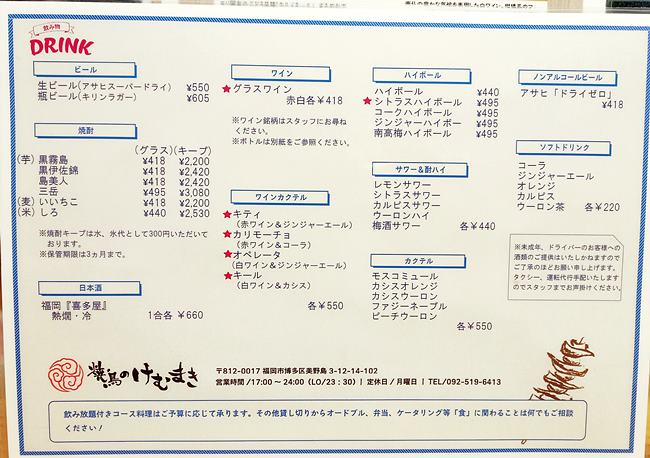 飲み物
DRINK
ビール
生ビール(アサヒスーパードライ) ¥550
瓶ビール(キリンラガー) ¥605
焼酎
(グラス)(キープ)
(芋) 黒霧島 ¥418 ¥2,200
黒伊佐錦 ¥418 ¥2,420
島美人 ¥418 ¥2,420
三岳 ¥495 ¥3,080
(麦) いいちこ ¥418 ¥2,200
(米) しろ ¥440 ¥2,530
※焼酎キープは水、氷代として300円いただいて
おります。
※保管期限は3ヵ月まで。
日本酒
福岡『喜多屋』
熱燗・冷 1合各 ¥660
ワイン
★グラスワイン
赤白各¥418
※ワイン銘柄はスタッフにお尋ね
ください。
※ボトルは別紙をご参照ください。
ワインカクテル
★キティ
(赤ワイン&ジンジャーエール)
★カリモーチョ
(赤ワイン&コーラ)
★オペレータ
(白ワイン&ジンジャーエール)
★キール
(白ワイン&カシス)
各¥550
ハイボール
ハイボール ¥440
★シトラスハイボール ¥495
コークハイボール ¥495
ジンジャーハイボー ¥495
南高梅ハイボール ¥495
サワー&酎ハイ
レモンサワー
シトラスサワー
カルピスサワー
ウーロンハイ
梅酒サワー 各¥440
カクテル
モスコミュール
カシスオレンジ
カシスウーロン
ファジーネーブル
ピーチウーロン
各¥550
ノンアルコールビール
アサヒ「ドライゼロ」
¥418
ソフトドリンク
コーラ
ジンジャーエール
オレンジ
カルピス
ウーロン茶 各¥220
※未成年、ドライバーのお客様への
酒類のご提供はいたしかねますので
ご了承のほどお願い申し上げます。
タクシー、運転代行手配いたします
のでスタッフまでお声掛けください。
焼鳥のけむまき
〒812-0017 福岡市博多区美野島 3-12-14-102
営業時間 /17:00 ~ 24:00 (LO/23:30) | 定休日 / 月曜日 | TEL/092-519-6413
飲み放題付きコース料理はご予算に応じて承ります。その他貸し切りからオードブル、弁当、ケータリング等「食」に関わることは何でもご相談
ください!